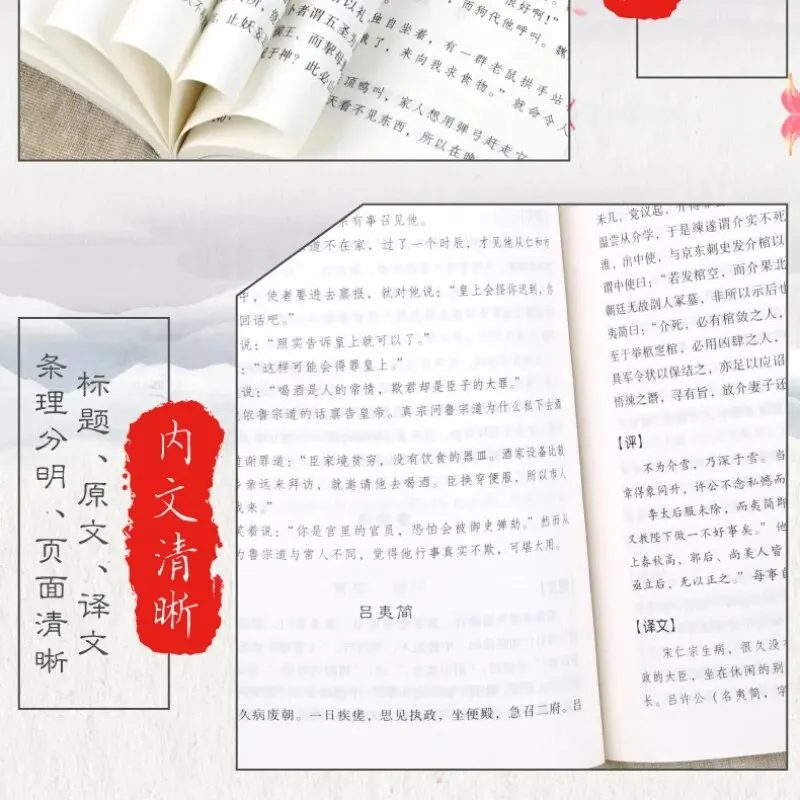 很好啊！”
而狗代他呼叫。魏
独自坐着，有一群老鼠拱手站
来向我求食物。”就命令人
顶鸣叫，家人想用弹弓赶走它
天看不见东西，所以在晚
者谓五圣为
而辱母
于神？此必
止妖
标题、原文、译文
条理分明、页面清晰
内文清晰
有事召见他。
道不在家，过了一个时辰，才见他从仁和
中，使者要进去禀报，就对他说：“皇上会怪你迟到，
回话吧。”
说：“照实告诉皇上就可以了。”
：“这样可能会得罪皇上。”
说：“喝酒是人的常情，欺君却是臣子的大罪。”
依鲁宗道的话禀告皇帝。真宗问鲁宗道为什么私下去酒
谢罪道：“臣家境贫穷，没有饮食的器皿。酒家设备比较
亲远来拜访，就邀请他去喝酒。臣换穿便服，所以市人
我来。”
笑着说：“你是宫里的官员，恐怕会被御史弹劾。”然而从
为鲁宗道与常人不同，觉得他行事真实不欺，可堪大用。
吕夷简
久病废朝。一日疾瘥，思见执政，坐便殿，急召二府。吕
未几，党议起，介得
温尝从介学，于是竦遂谓介实不死
谁，出中使，与京东刺史发介棺以
谓中使曰：“若发棺空，而介果北
朝廷无故剖人冢墓，非所以示后也
夷简曰：“介死，必有棺敛之人，
至于举柩窆棺，必用凶肆之人，
具军令状以保结之，亦足以应诏
悟竦之谮，寻有旨，放介妻子还
【评】
不为介雪，乃深于雪。当
幸得象同升，许公不念私憾而
李太后服未除，而夷简即
又教陛下做一不好事矣。”他
上春秋高，郭后、尚美人皆
亟立后，无以正之。”每事自
【译文】
宋仁宗生病，很久没
政的大臣，坐在休闲的别
长。吕许公（名夷简，字